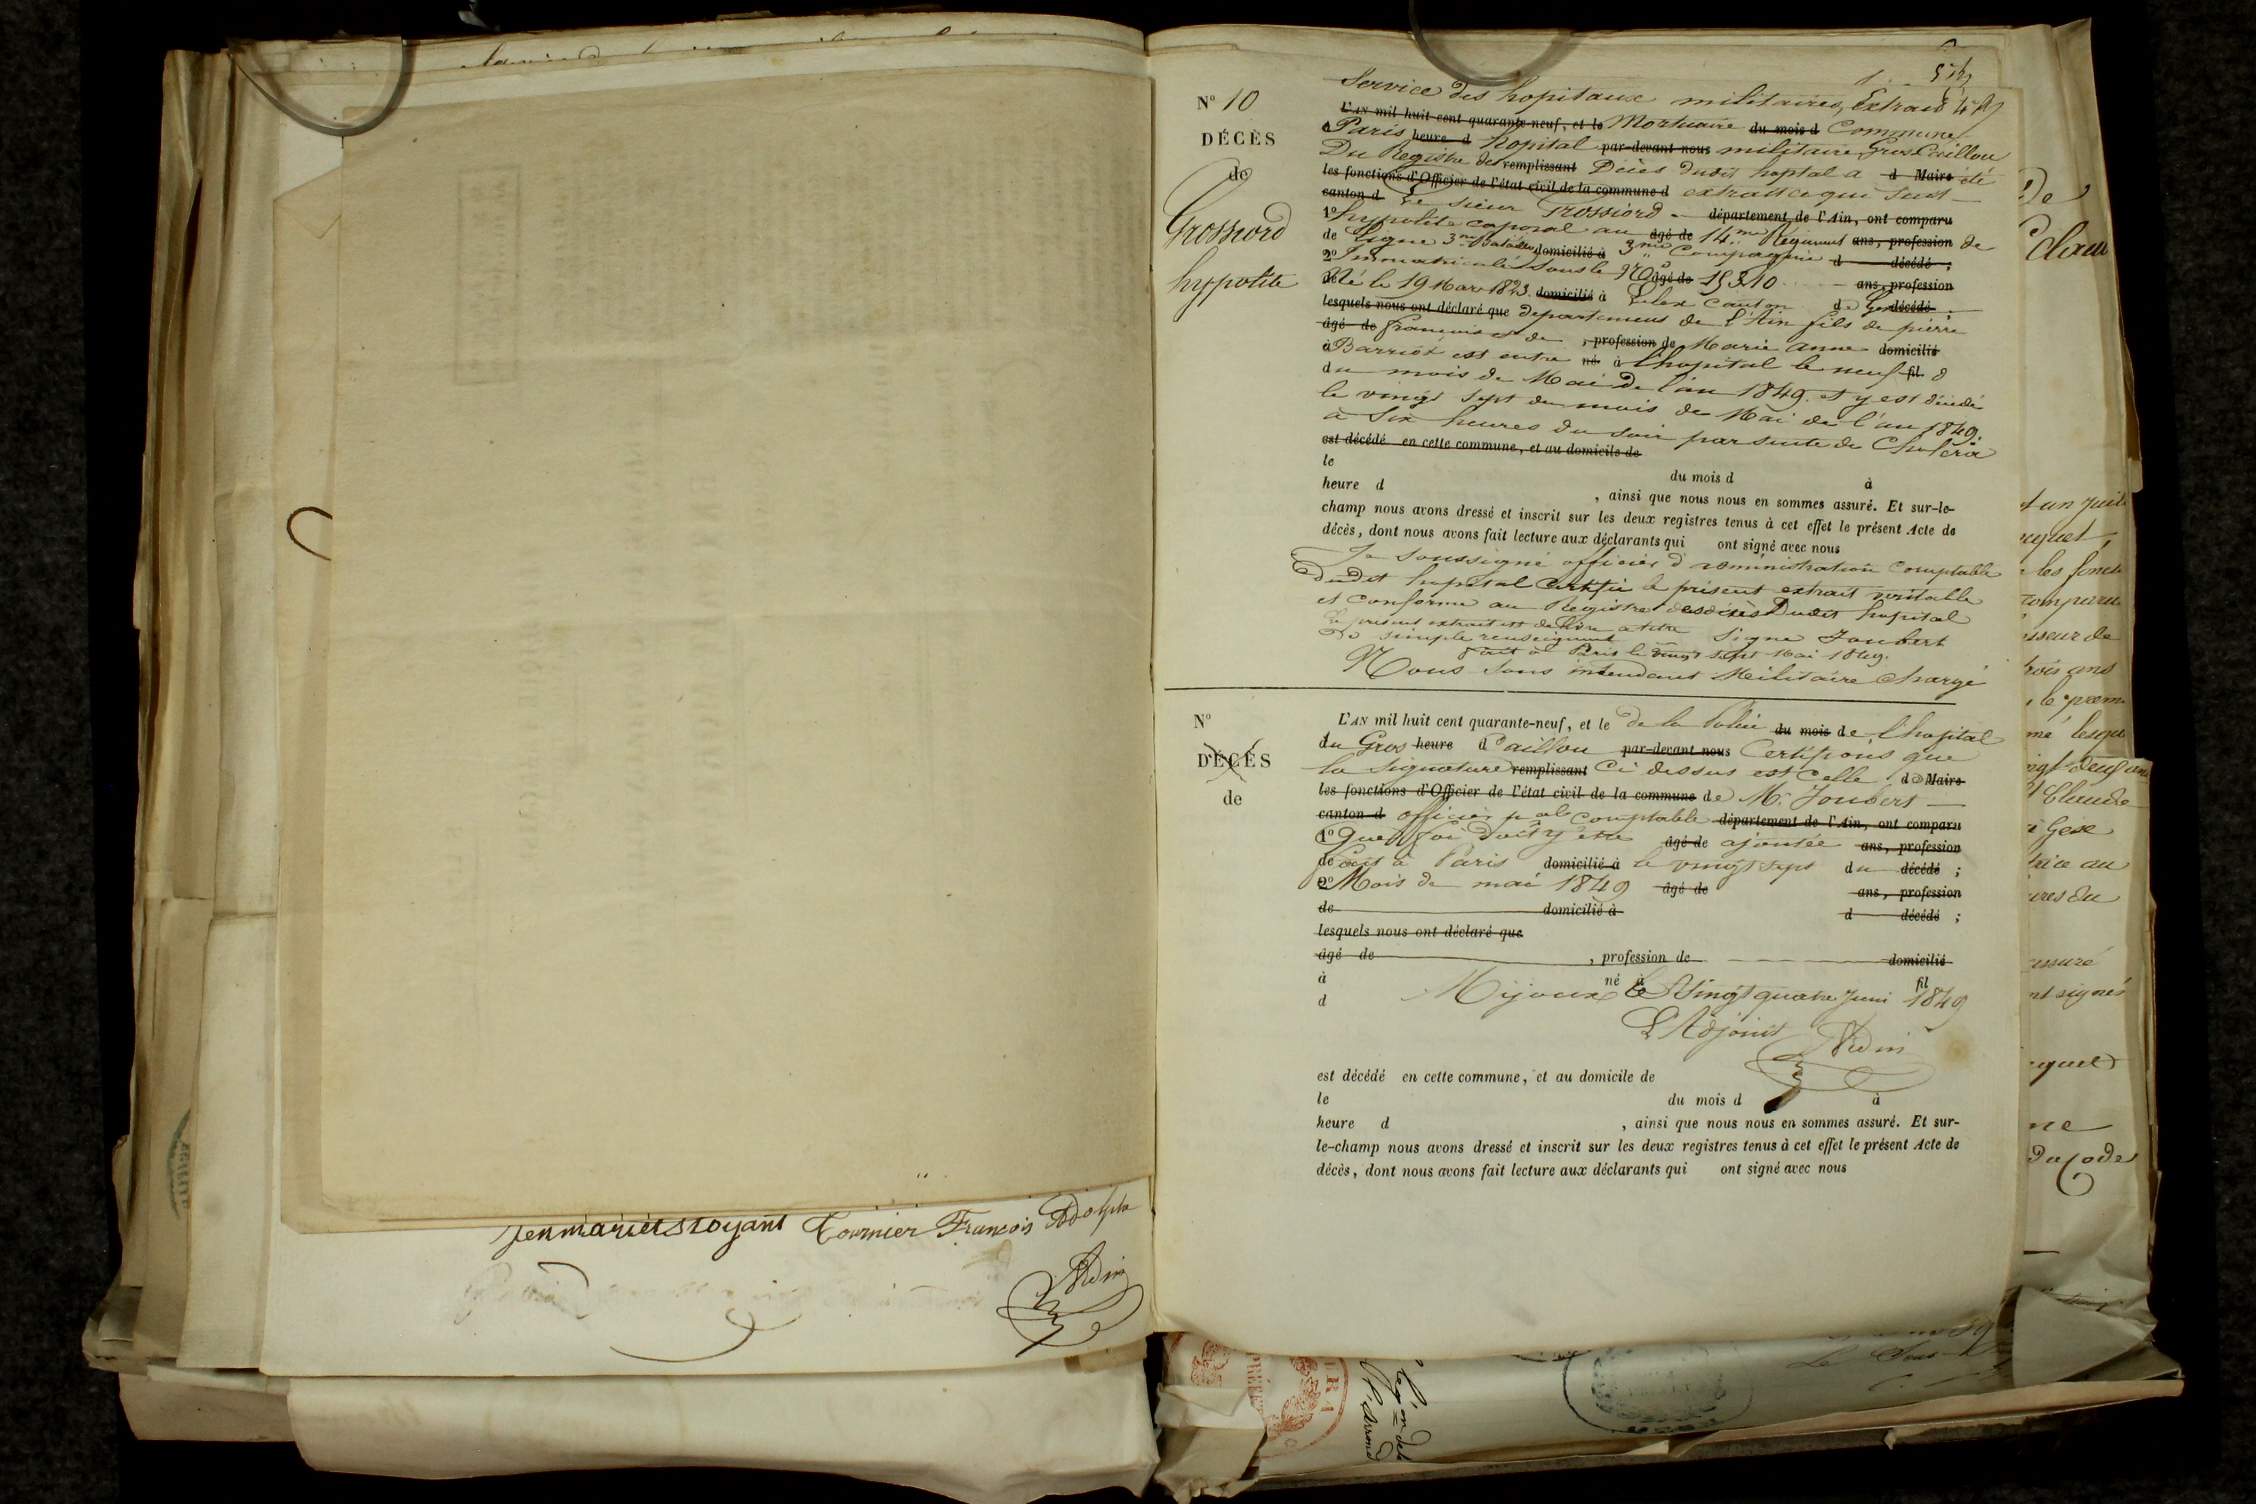 Jenmariet Stoyant Tournier François Adolphe
5
Service des hopitaux militaires, Extrait
N° 10
L'AN mil huit cent quarante-neuf, et le Mortuaire du mois d Commune
DÉCÈS
Paris heure d hopital par-devant nous militaire Gros Caillou
Du Registre des remplissant Décès dudit hopital a d Maire été
de
les fonctions d'Officier de l'état civil de la commune d extrait ce qui suit
canton d Le sieur Grossiord département de l'Ain, ont comparu
Grossiord
1° hypolite caporal au âgé de 14me Régiment ans, profession de
de Ligne 3me Bataillon domicilié à 3me Compagnie d décédé ;
hypolite
2° Immatriculé sous le N° âgé de 15310 ans, profession
de Né le 19 Mars 1823 domicilié à Lelex Canton d de Gex décédé
lesquels nous ont déclaré que departement de l'Ain fils de pierre
âgé de françois et de , profession de Marie anne domicilié
à Barriot est entré né à l'hopital le neuf fil d
du mois de Mai de l'an 1849 et y est décédé
le vingt sept du mois de Mai de l'an 1849
à Six heures du soir par suite de Cholera
est décédé en cette commune, et au domicile de
le du mois d à
heure d , ainsi que nous nous en sommes assuré. Et sur-le-
champ nous avons dressé et inscrit sur les deux registres tenus à cet effet le présent Acte de
décès, dont nous avons fait lecture aux déclarants qui ont signé avec nous
Je soussigné officier d'administration comptable
Dudit hopital certifie le présent extrait véritable
et conforme au Registre des décès Dudit hopital
Le présent extrait est delivré a titre Signé Joubert
De simple renseignement
fait à Paris le vingt sept Mai 1849.
Nous Sous intendant Militaire chargé
N°
L'AN mil huit cent quarante-neuf, et le de la Police du mois de l'hopital
DÉCÈS
du Gros heure d Caillou par-devant nous Certifions que
la signature remplissant Ci dessus est Celle d Maire
de
les fonctions d'Officier de l'état civil de la commune de Mr Joubert
canton d officier comptable département de l'Ain, ont comparu
1° que foi doit y être âgé de ajoutée ans, profession
de fait à Paris domicilié à le vingt sept du décédé ;
2° Mois de mai 1849 âgé de ans, profession
de domicilié à d décédé ;
lesquels nous ont déclaré que
âgé de , profession de domicilié
à né à fil
d Mijoux le Vingt quatre Juin 1849
L'Adjoint
est décédé en cette commune, et au domicile de
le du mois d à
heure d , ainsi que nous nous en sommes assuré. Et sur-
le-champ nous avons dressé et inscrit sur les deux registres tenus à cet effet le présent Acte de
décès, dont nous avons fait lecture aux déclarants qui ont signé avec nous